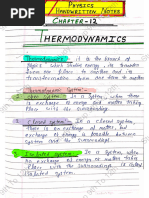 PHYSICS
HANDWRITTEN NOTES
CHAPTER-12
THERMODYNAMICS
Thermodynamics: it is the branch of
physics which studies energy, its transfer
from one place to another and its
transformation from one form to another.
Thermodynamic System:-
Open System: In a System, when there
is an exchange of energy and matter taking
place with the surroundings.
Closed System: In a closed System,
there is an exchange of energy, but
there is no exchange of matter between
the System and the surroundings.
Isolated System: In a System, when
no exchange of energy or matter takes
place with the Surroundings, is called
isolated system.